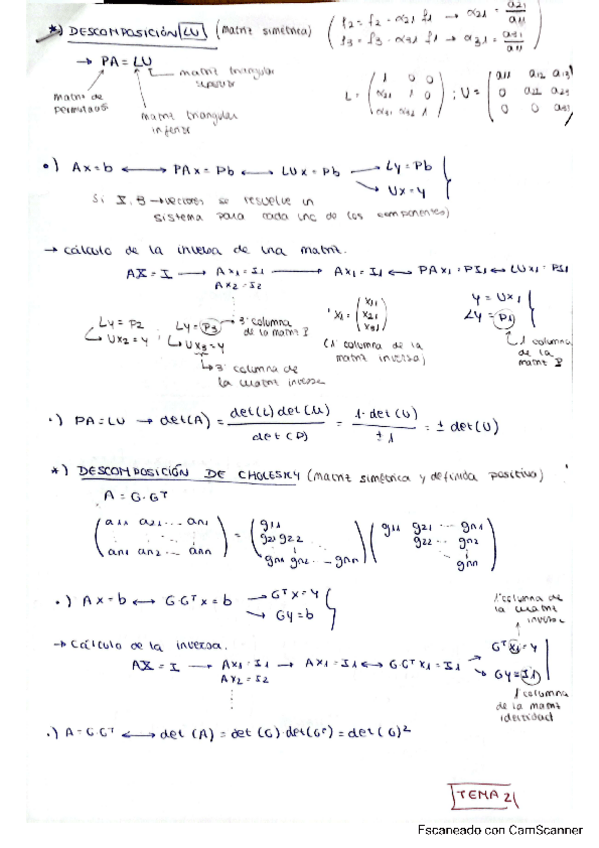 *) DESCOMPOSICIÓN LU (matriz simétrica) ( f2 = f2 - α21 f1 → α21 = a21/a11
f3 = f3 - α31 f1 → α31 = a31/a11 )
→ PA = LU
matriz triangular superior
matriz de permutación
matriz triangular inferior
L = ( 1 0 0
α21 1 0
α31 α32 1 ) ; U = ( a11 a12 a13
0 a22 a23
0 0 a33 )
•) Ax = b ⟷ PAx = Pb ⟷ LUx = Pb → Ly = Pb
→ Ux = y
Si X, B → vectores se resuelve un
sistema para cada uno de los componentes)
→ cálculo de la inversa de una matriz.
AX = I → Ax1 = I1 → Ax1 = I1 ⟷ PAx1 = PI1 ⟷ LUx1 = PI1
Ax2 = I2
Ly = P2
Ux2 = y
Ly = P3 → 3ª columna
de la matriz P
Ux3 = y
→ 3ª columna de
la matriz inversa
x1 = ( x11
x21
x31 )
(1ª columna de la
matriz inversa)
y = Ux1
Ly = P1
1ª columna
de la
matriz P
•) PA = LU → det(A) = det(L) det(U) / det(P) = 1·det(U) / ±1 = ± det(U)
*) DESCOMPOSICIÓN DE CHOLESKY (matriz simétrica y definida positiva)
A = G·Gᵀ
( a11 a21 ... an1
an1 an2 ... ann ) = ( g11
g21 g22
gn1 gn2 ... gnn ) ( g11 g21 ... gn1
g22 ... gn2
gnn )
•) Ax = b ⟷ G·Gᵀx = b → Gᵀx = y
→ Gy = b
1ª columna de
la matriz
inversa
→ Cálculo de la inversa.
AX = I → Ax1 = I1 → Ax1 = I1 ⟷ G·Gᵀx1 = I1 → Gᵀx1 = y
Ax2 = I2
→ Gy = I1
1 columna
de la matriz
identidad
•) A = G·Gᵀ ⟷ det (A) = det (G)·det(Gᵀ) = det (G)²
TEMA 2
Escaneado con CamScanner